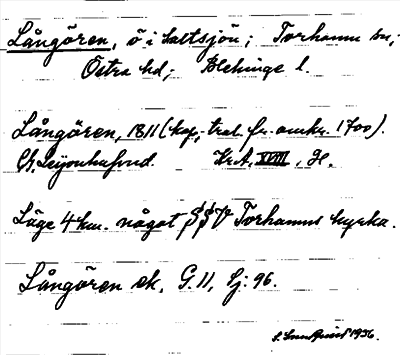 Långören, ö i Saltsjön; Torhamn sn,
Östra hd,- Blekinge l.
Långören, 1811 (kop,- trol. fr. omkr. 1700).
Ch. Leijonhufvud. Kr.A. XVIII, H.
Läge 4 km. något SSV Torhamns kyrka.
Långören ek, G. 11, lj: 96.
1936.